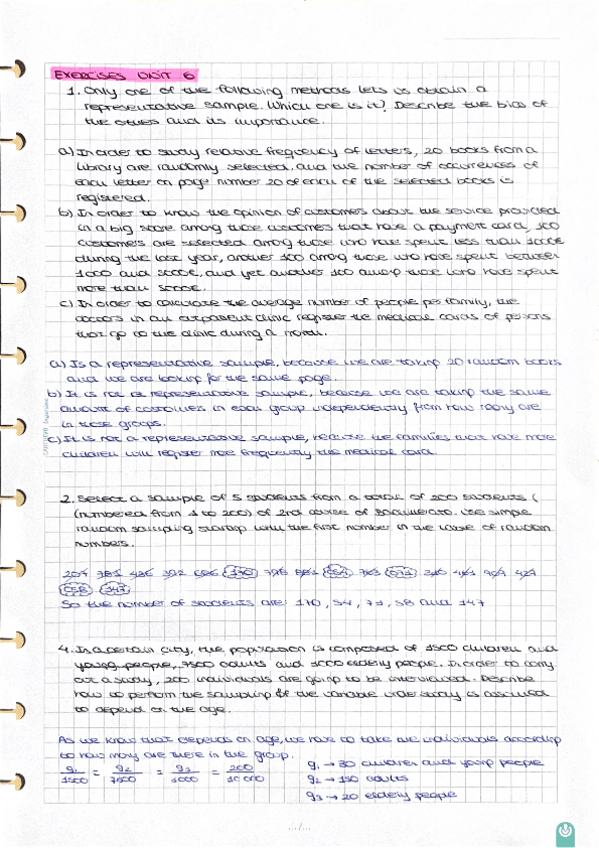 EXERCISES UNIT 6
1. Only one of the following methods lets us obtain a
representative sample. Which one is it? Describe the bias of
the others and its importance.
a) In order to study relative frequency of letters, 20 books from a
library are randomly selected, and the number of occurrences of
each letter on page number 20 of each of the selected books is
registered.
b) In order to know the opinion of customers about the service provided
in a big store among those customers that have a payment card, 100
customers are selected among those who have spent less than 1000€
during the last year, another 100 among those who have spent between
1000 and 3000€, and yet another 100 among those who have spent
more than 3000€.
c) In order to calculate the average number of people per family, the
doctors in an outpatient clinic register the medical cards of persons
that go to the clinic during a month.
a) Is a representative sample, because we are taking 20 random books
and we are looking for the same page.
b) It is not a representative sample, because we are taking the same
amount of costumes in each group independently from how many are
in those groups.
c) It is not a representative sample, because the families that have more
children will register more frequently the medical card.
2. Select a sample of 5 students from a total of 200 students (
(numbered from 1 to 200) of 2nd course of Bachillerato. Use simple
random sampling starting with the first number in the table of random
numbers.
So the number of students are: 170, 54, 71, 58 and 147
4. In a certain city, the population is composed of 1500 children and
young people, 7500 adults and 1000 elderly people. In order to carry
out a study, 200 individuals are going to be interviewed. Describe
how to perform the sampling if the variable under study is assumed
to depend on the age.
As we know that depends on age, we have to take the individuals according
to how many are there in the group.
g1/1500 = g2/7500 = g3/1000 = 200/10000
g1 → 30 children and young people
g2 → 150 adults
g3 → 20 elderly people
.../...